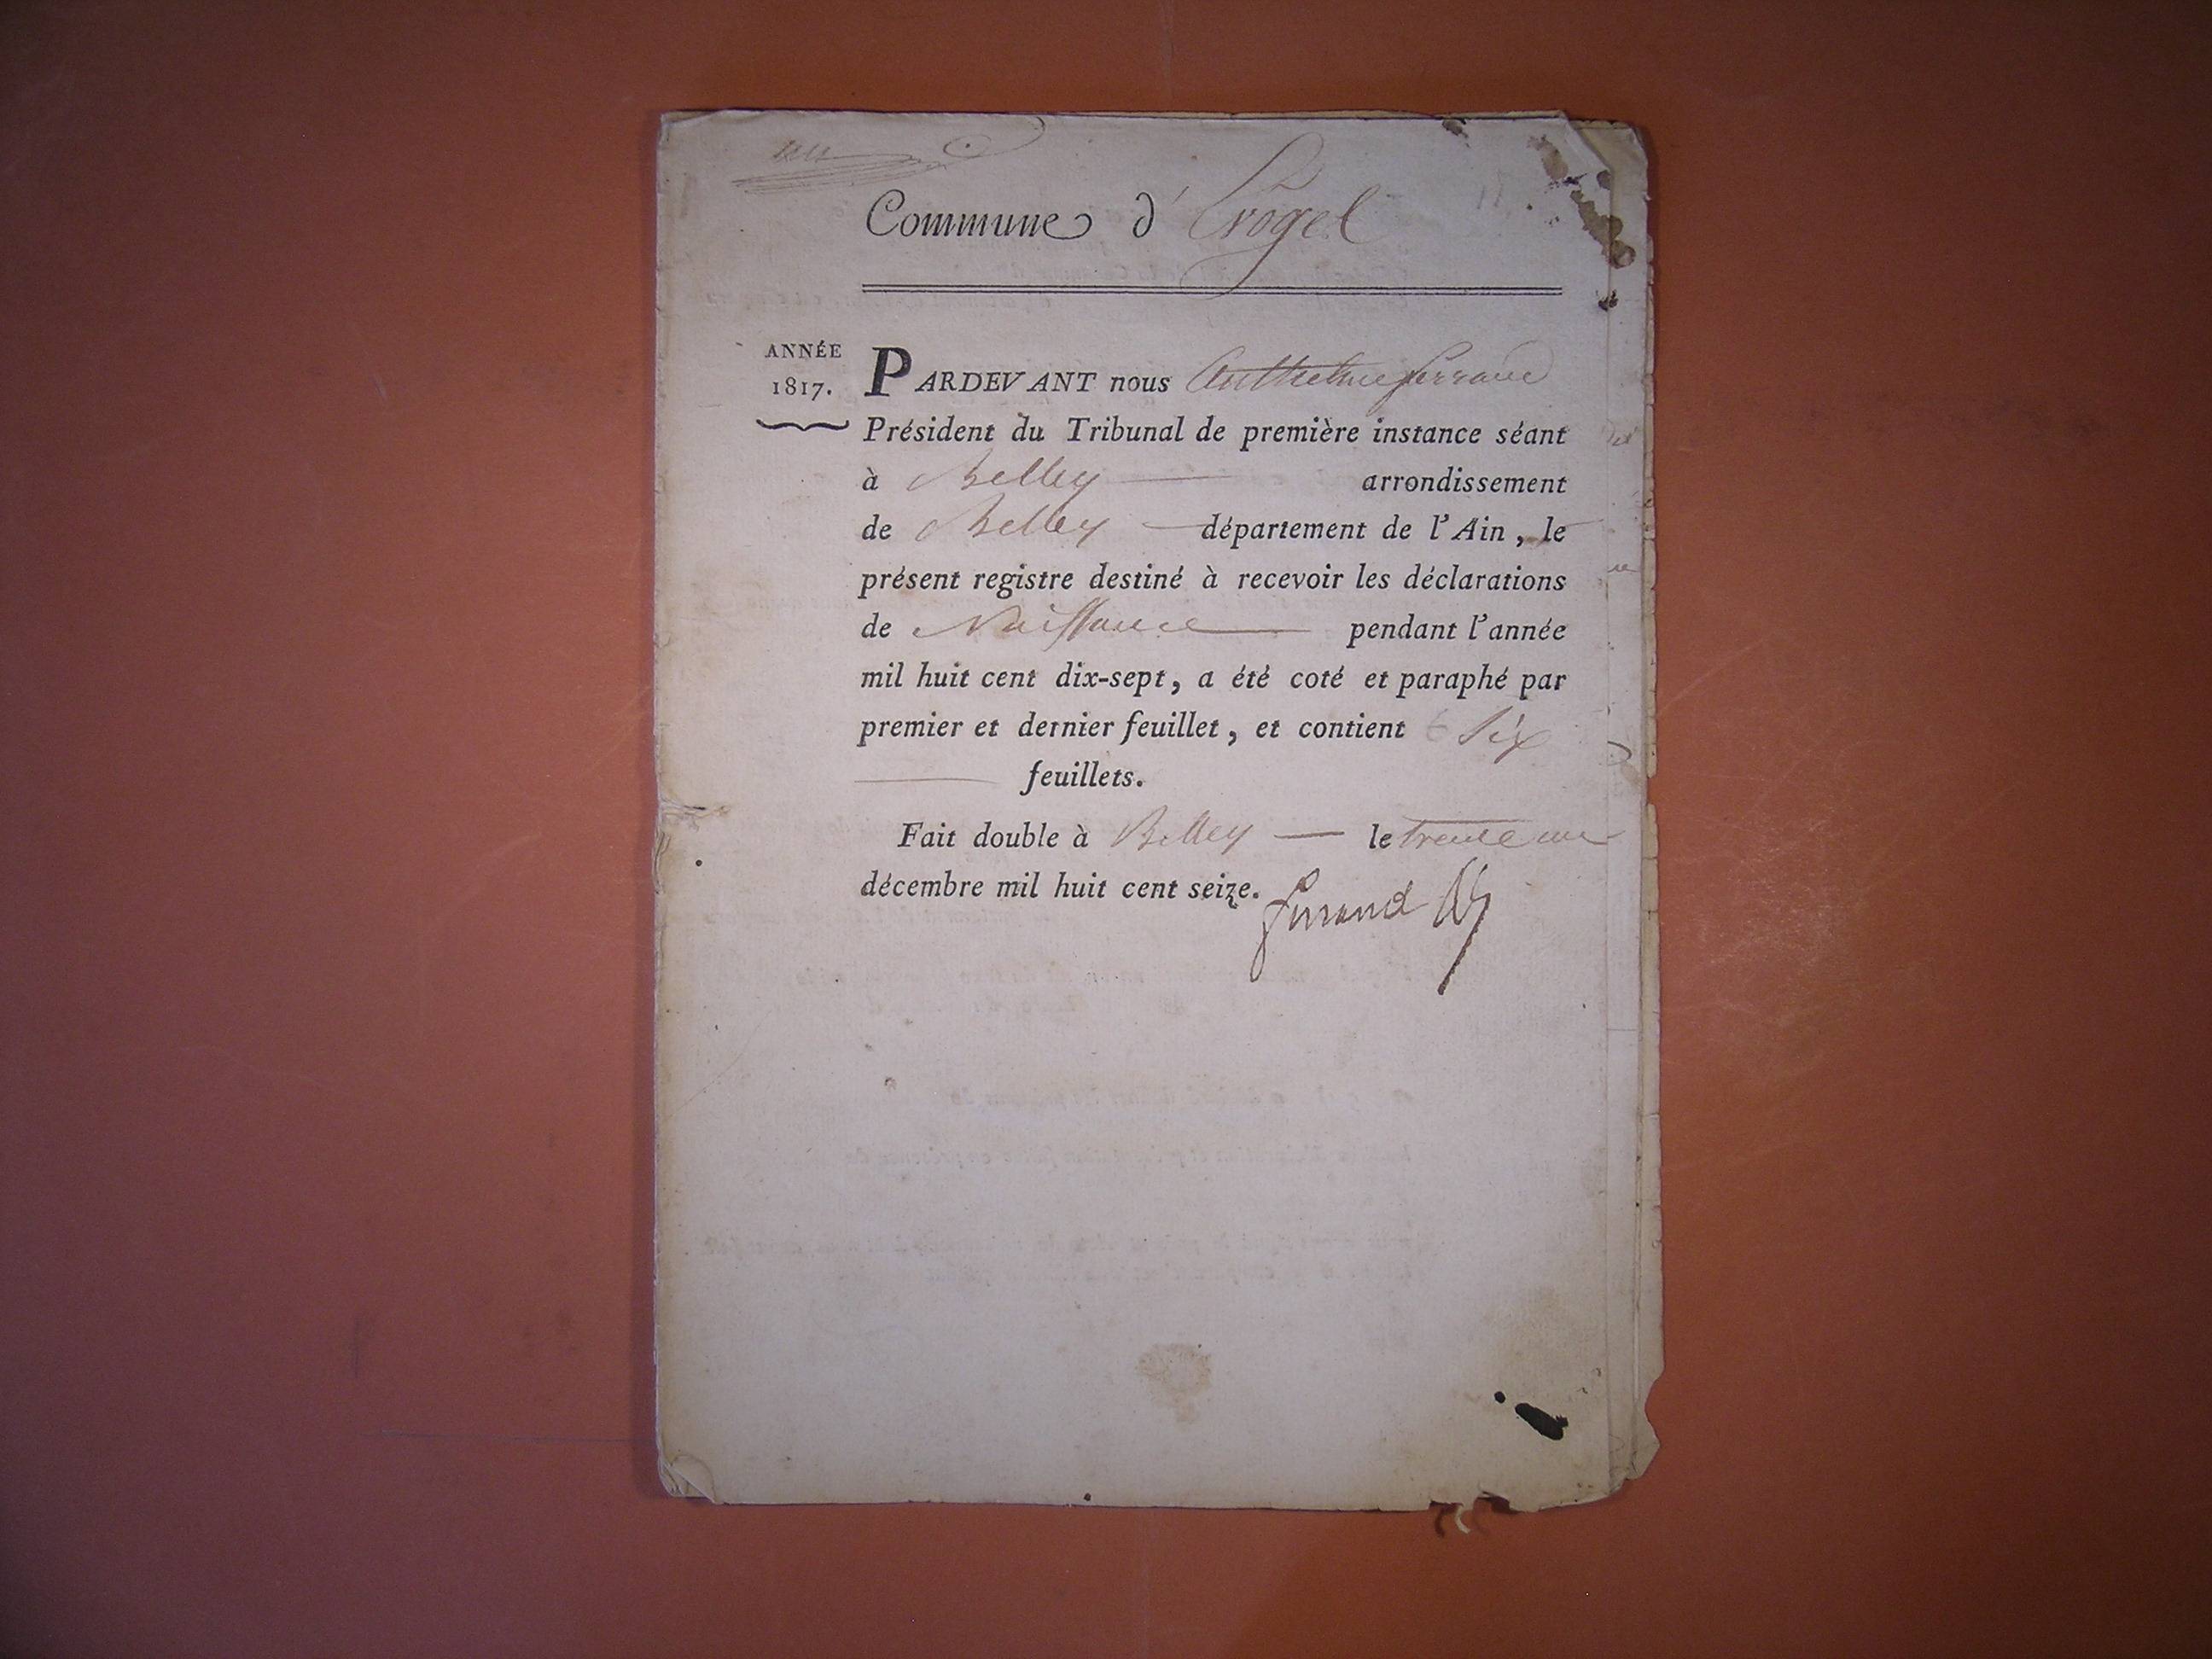 un
Commune d' Crogel
ANNÉE
1817.
PARDEVANT nous Anthelme ferrand
Président du Tribunal de première instance séant
à Belley arrondissement
de Belley département de l'Ain, le
présent registre destiné à recevoir les déclarations
de Naissance pendant l'année
mil huit cent dix-sept, a été coté et paraphé par
premier et dernier feuillet, et contient 6 Six
feuillets.
Fait double à Belley le trente un
décembre mil huit cent seize.
ferrand